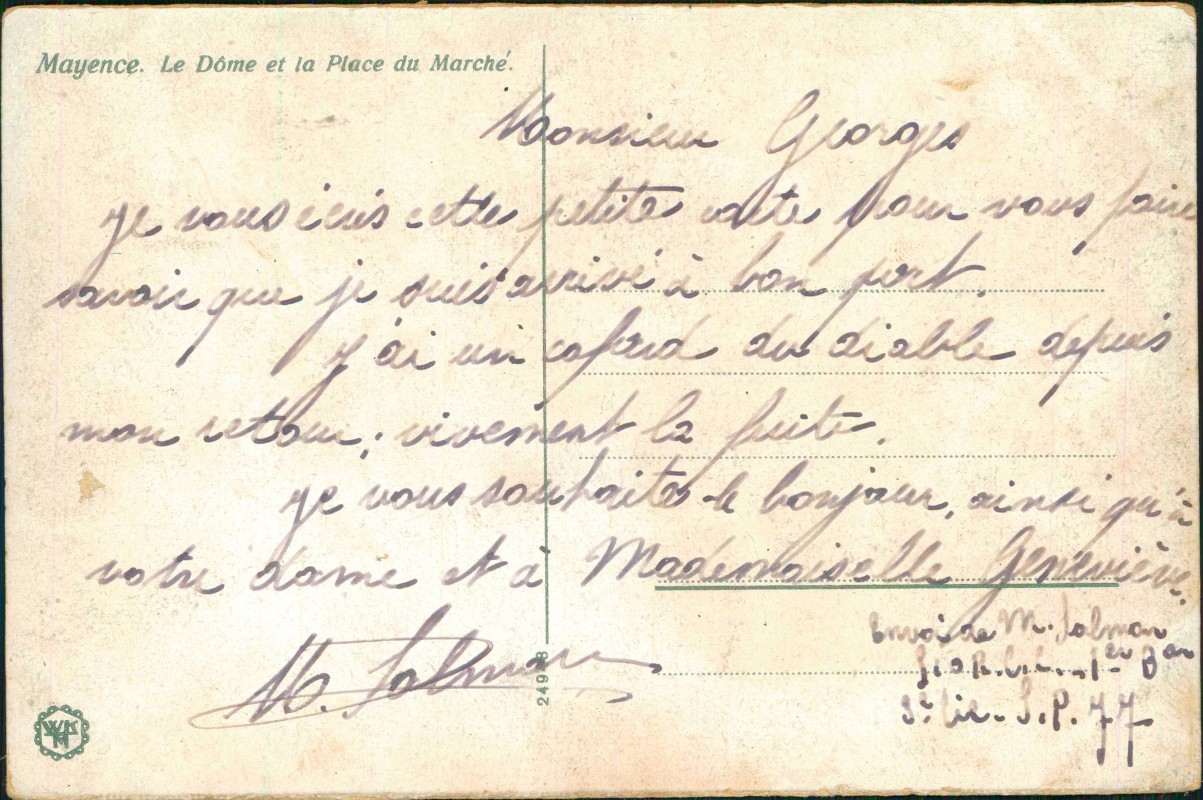 Mayence. Le Dôme et la Place du Marché.
Monsieur Georges
je vous écris cette petite carte pour vous faire
savoir que je suis arrivé à bon port.
J'ai un cafard du diable depuis
mon retour; vivement la fuite.
je vous souhaite le bonjour, ainsi qu'à
votre dame et à Mademoiselle Geneviève.
M. Salmon
Envoi de M. Salmon
1er Bon
3e Cie - S.P. 77
24918
WKM